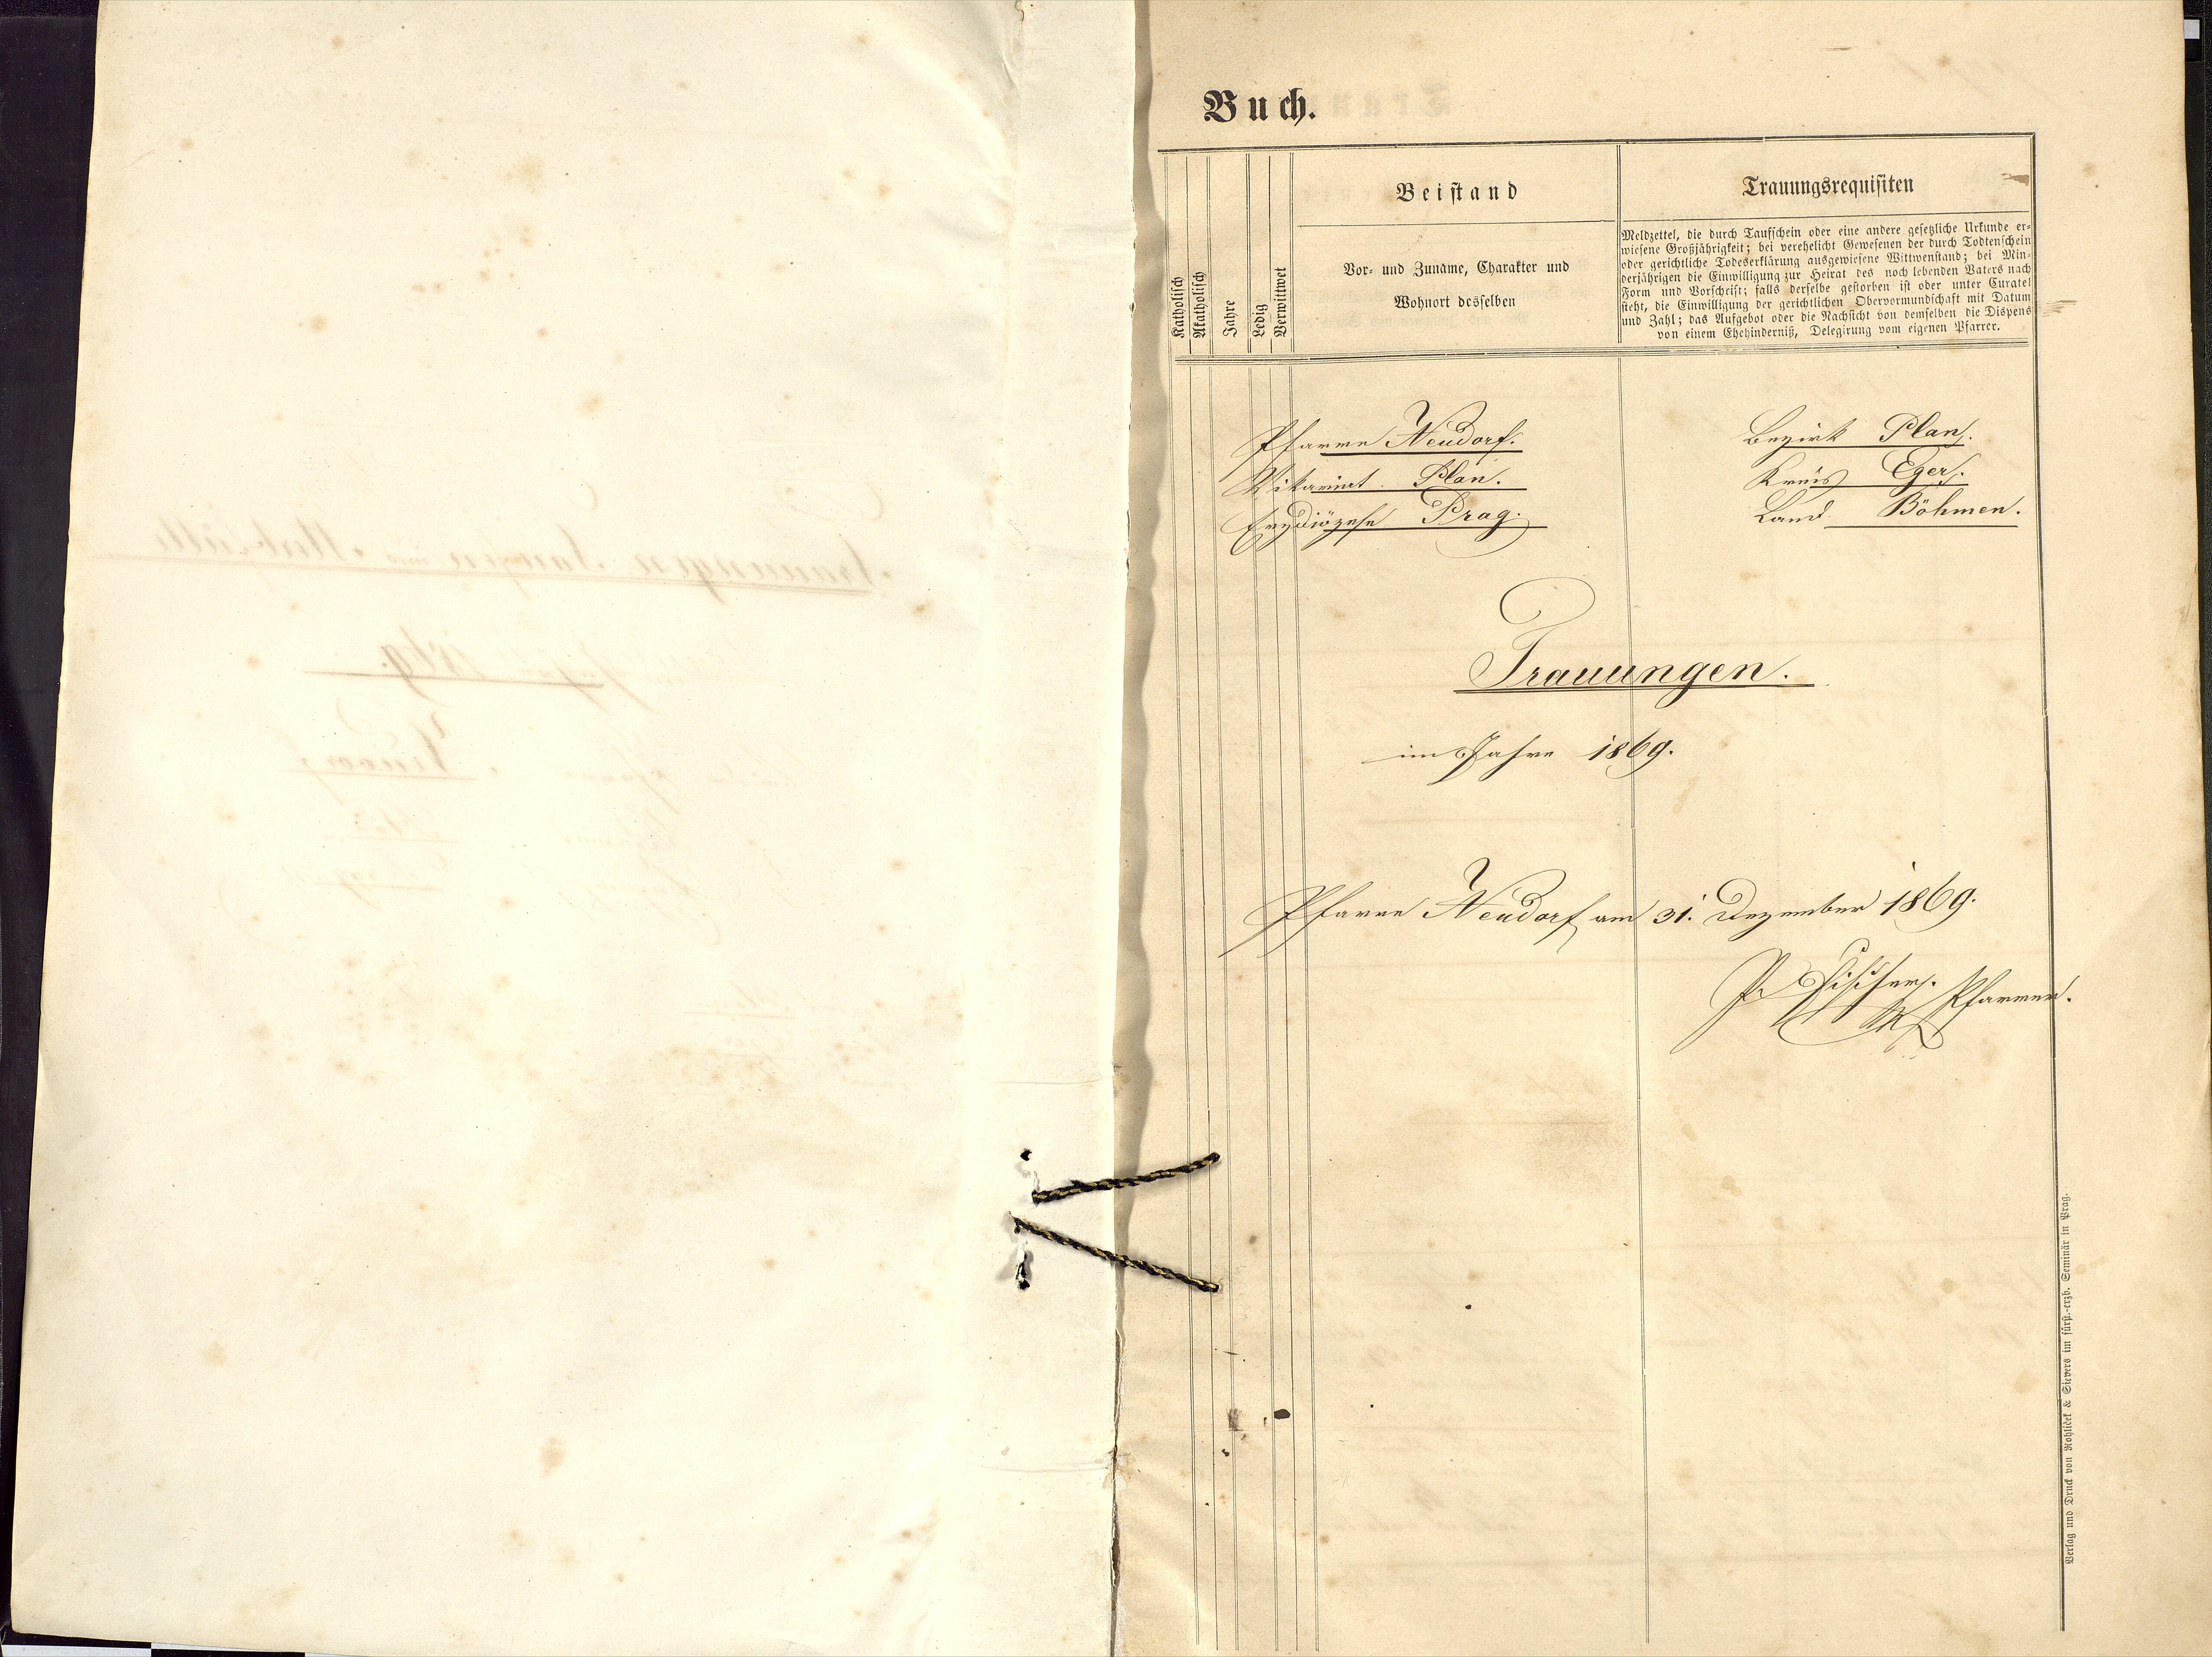 Buch.
Katholisch
Akatholisch
Jahre
Ledig
Verwittwet
Beistand
Vor- und Zuname, Charakter und
Wohnort desselben
Trauungsrequisiten
Meldzettel, die durch Taufschein oder eine andere gesetzliche Urkunde er-
wiesene Großjährigkeit; bei verehelicht Gewesenen der durch Todtenschein
oder gerichtliche Todeserklärung ausgewiesene Wittwenstand; bei Min-
derjährigen die Einwilligung zur Heirat des noch lebenden Vaters nach
Form und Vorschrift; falls derselbe gestorben ist oder unter Curatel
steht, die Einwilligung der gerichtlichen Obervormundschaft mit Datum
und Zahl; das Aufgebot oder die Nachsicht von demselben die Dispens
von einem Ehehinderniß, Delegirung vom eigenen Pfarrer.
Pfarre Neudorf.
Vikariat Plan.
Erzdiözese Prag.
Bezirk Plan.
Kreis Eger.
Land Böhmen.
Trauungen.
im Jahre 1869.
Pfarre Neudorf am 31. Dezember 1869.
P. Fischer. Pfarrer.
Verlag und Druck von Rohliček & Sievers im fürst.-erzb. Seminär in Prag.